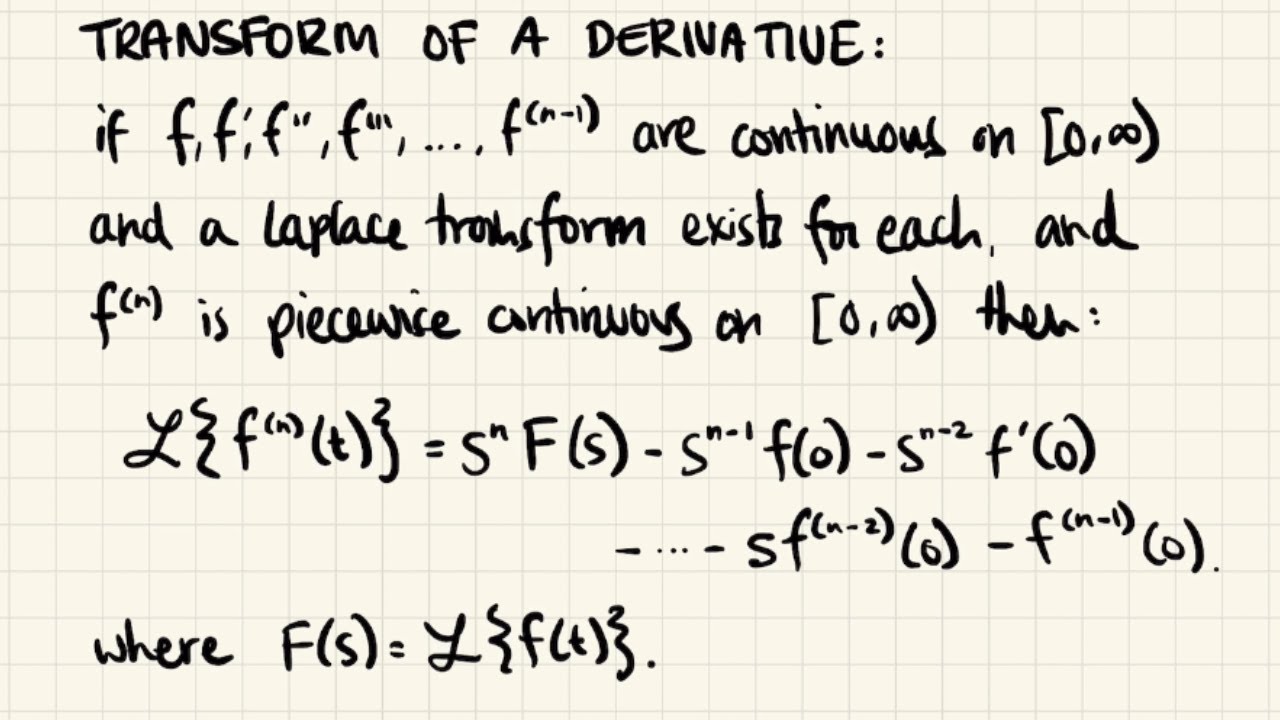 TRANSFORM OF A DERIVATIVE:
if f, f', f'', f''', ..., f⁽ⁿ⁻¹⁾ are continuous on [0,∞)
and a Laplace transform exists for each, and
f⁽ⁿ⁾ is piecewise continuous on [0,∞) then:
ℒ{f⁽ⁿ⁾(t)} = sⁿF(s) - sⁿ⁻¹f(0) - sⁿ⁻²f'(0)
- ... - sf⁽ⁿ⁻²⁾(0) - f⁽ⁿ⁻¹⁾(0).
where F(s) = ℒ{f(t)}.